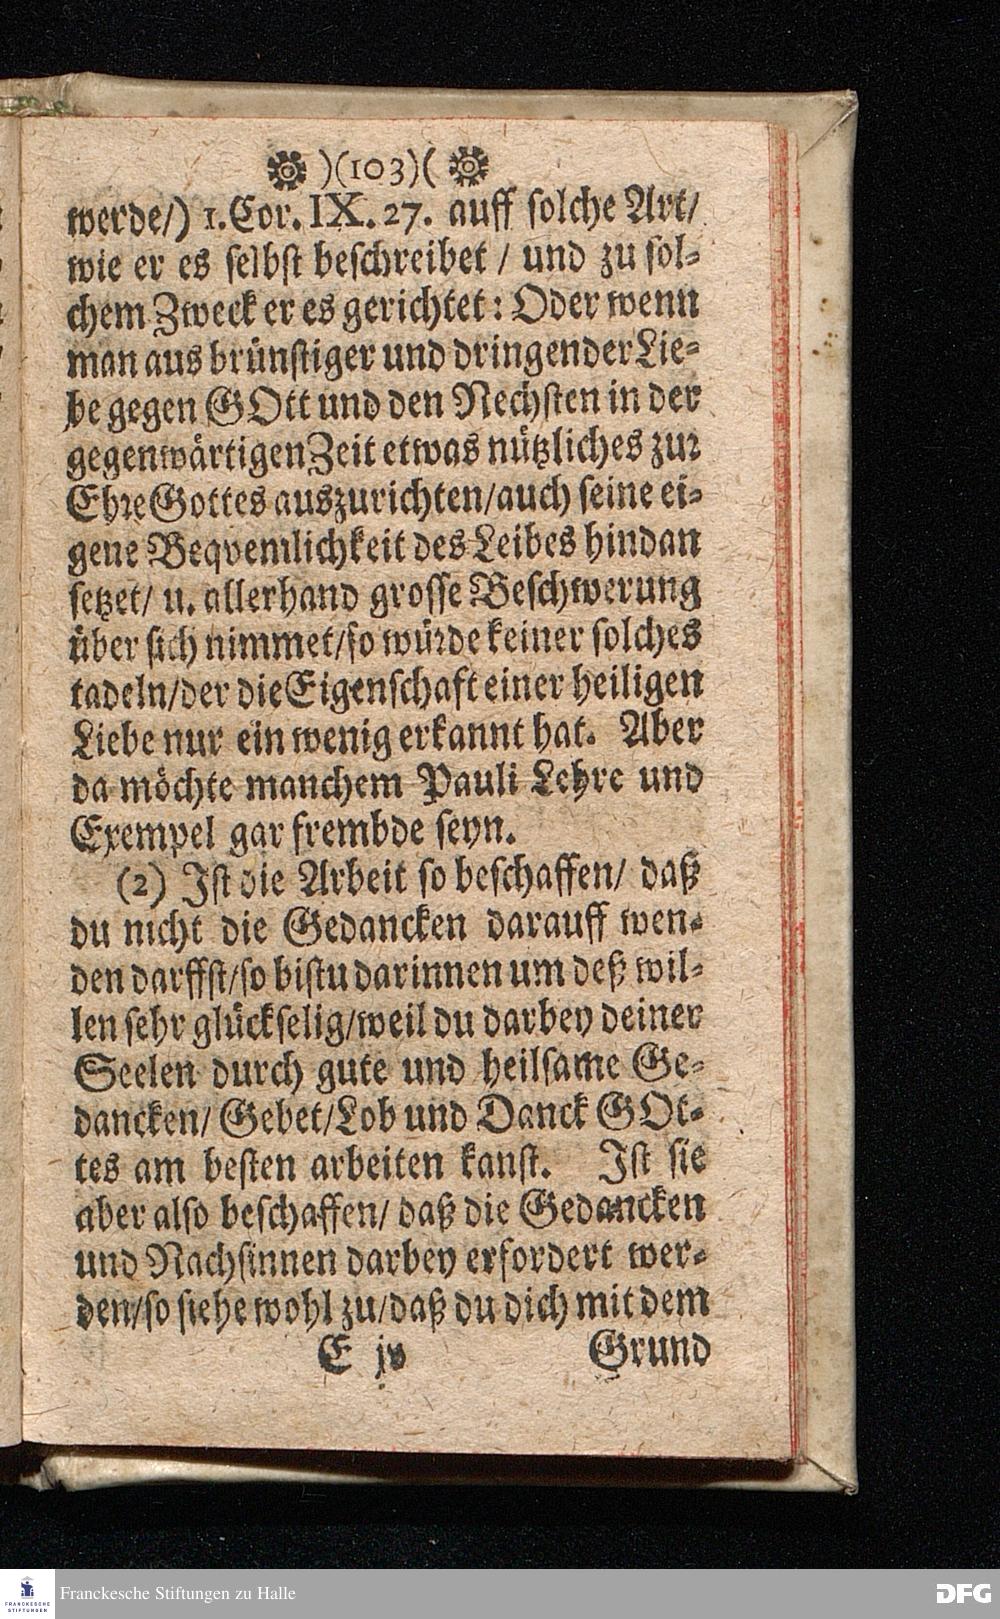 )(103)(
werde/) 1. Cor. IX. 27. auff solche Art/
wie er es selbst beschreibet / und zu sol-
chem Zweck er es gerichtet: Oder wenn
man aus brünstiger und dringender Lie-
be gegen GOtt und den Nechsten in der
gegenwärtigen Zeit etwas nützliches zur
Ehre Gottes auszurichten/auch seine ei-
gene Beqvemlichkeit des Leibes hindan
setzet/ u. allerhand grosse Beschwerung
über sich nimmet/so würde keiner solches
tadeln/der die Eigenschafft einer heiligen
Liebe nur ein wenig erkannt hat. Aber
da möchte manchem Pauli Lehre und
Exempel gar frembde seyn.
(2) Ist die Arbeit so beschaffen/ daß
du nicht die Gedancken darauff wen-
den darffst/so bistu darinnen um deß wil-
len sehr glückselig/weil du darbey deiner
Seelen durch gute und heilsame Ge-
dancken/ Gebet/Lob und Danck GOt-
tes am besten arbeiten kanst. Ist sie
aber also beschaffen/ daß die Gedancken
und Nachsinnen darbey erfordert wer-
den/so siehe wohl zu/daß du dich mit dem
E jv Grund
FRANCKESCHE STIFTUNGEN
Franckesche Stiftungen zu Halle
DFG